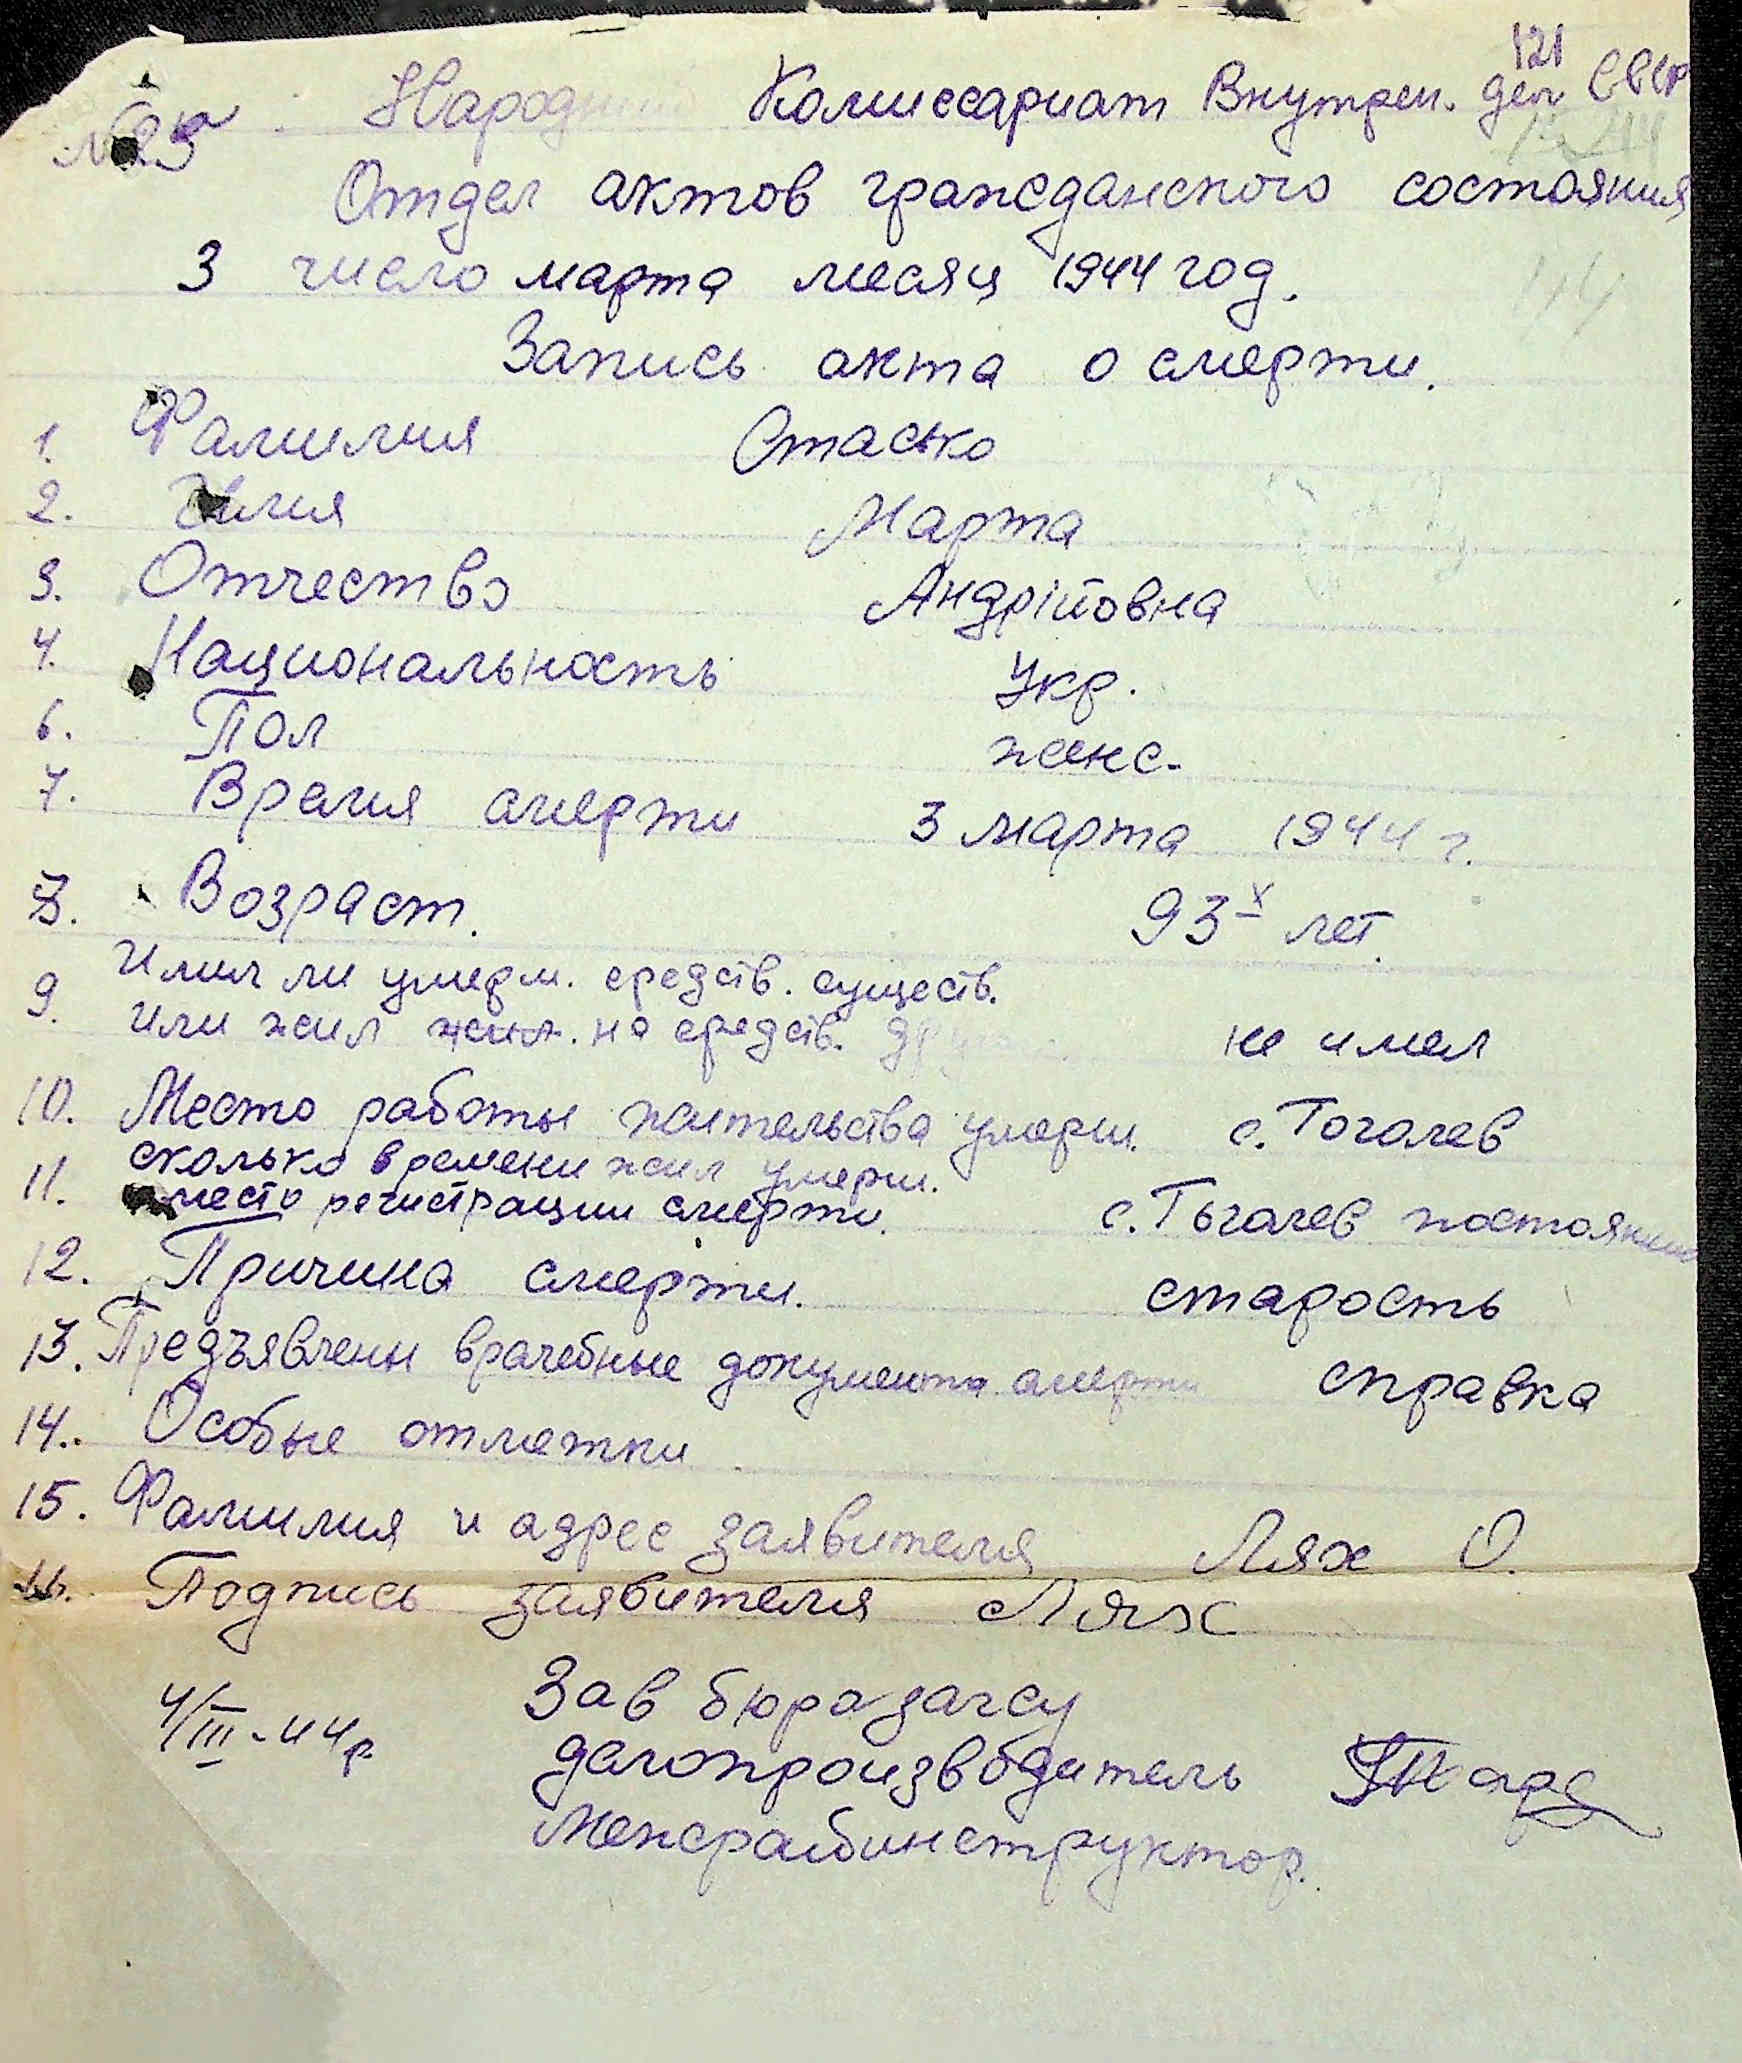 121
Народ Комиссариат Внутрен. дел СССР
№25
Отдел актов гражданского состояния
3 число марта месяц 1944 год.
Запись акта о смерти.
1. Фамилия Стасько
2. Имя Марта
3. Отчество Андрійовна
4. Национальность Укр.
6. Пол женс.
7. Время смерти 3 марта 1944 г.
8. Возраст. 93х лет.
Имил ли умерш. средств. существ.
9. или жил жил. на средств. не имел
10. Место работы жительства умерш. с. Гоголев
сколько времени жил умерш.
11. место регистрации смерти. с. Гоголев постоянно
12. Причина смерти. старость
13. Предъявлены врачебные документа смерти справка
14. Особые отметки
15. Фамилия и адрес заявителя Лях О.
16. Подпись заявителя Лях
4/III-44р Зав бюро загсу
делопроизводитель
Межрайинструктор.